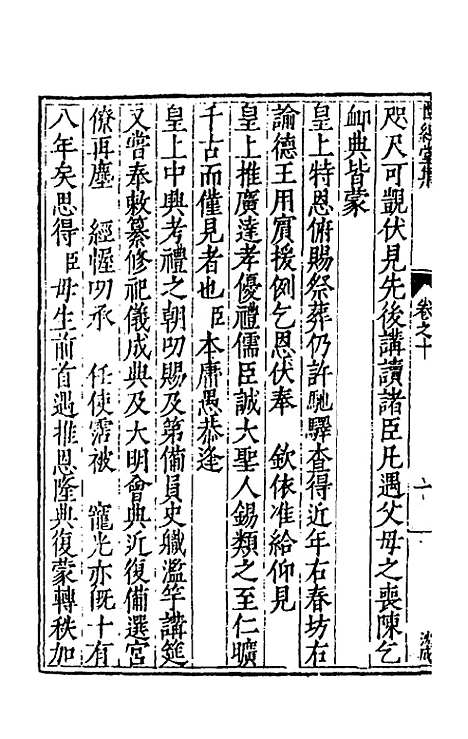 世經堂集
卷之十
咫尺可觀伏見先後講讀諸臣凡遇父母之喪陳乞
卹典皆蒙
皇上特恩俯賜祭葬仍許馳驛查得近年右春坊右
諭德王用賔援例乞恩伏奉 欽依准給仰見
皇上推廣達孝優禮儒臣誠大聖人錫類之至仁曠
千古而僅見者也臣本庸愚恭逢
皇上中興考禮之朝叨賜及第備員史軄濫竽講筵
又嘗奉敕纂修祀儀成典及大明會典近復備選宮
僚再塵 經幄叨承 任使霑被 寵光亦旣十有
八年矣思得臣母生前首遇推恩隆典復蒙轉秩加